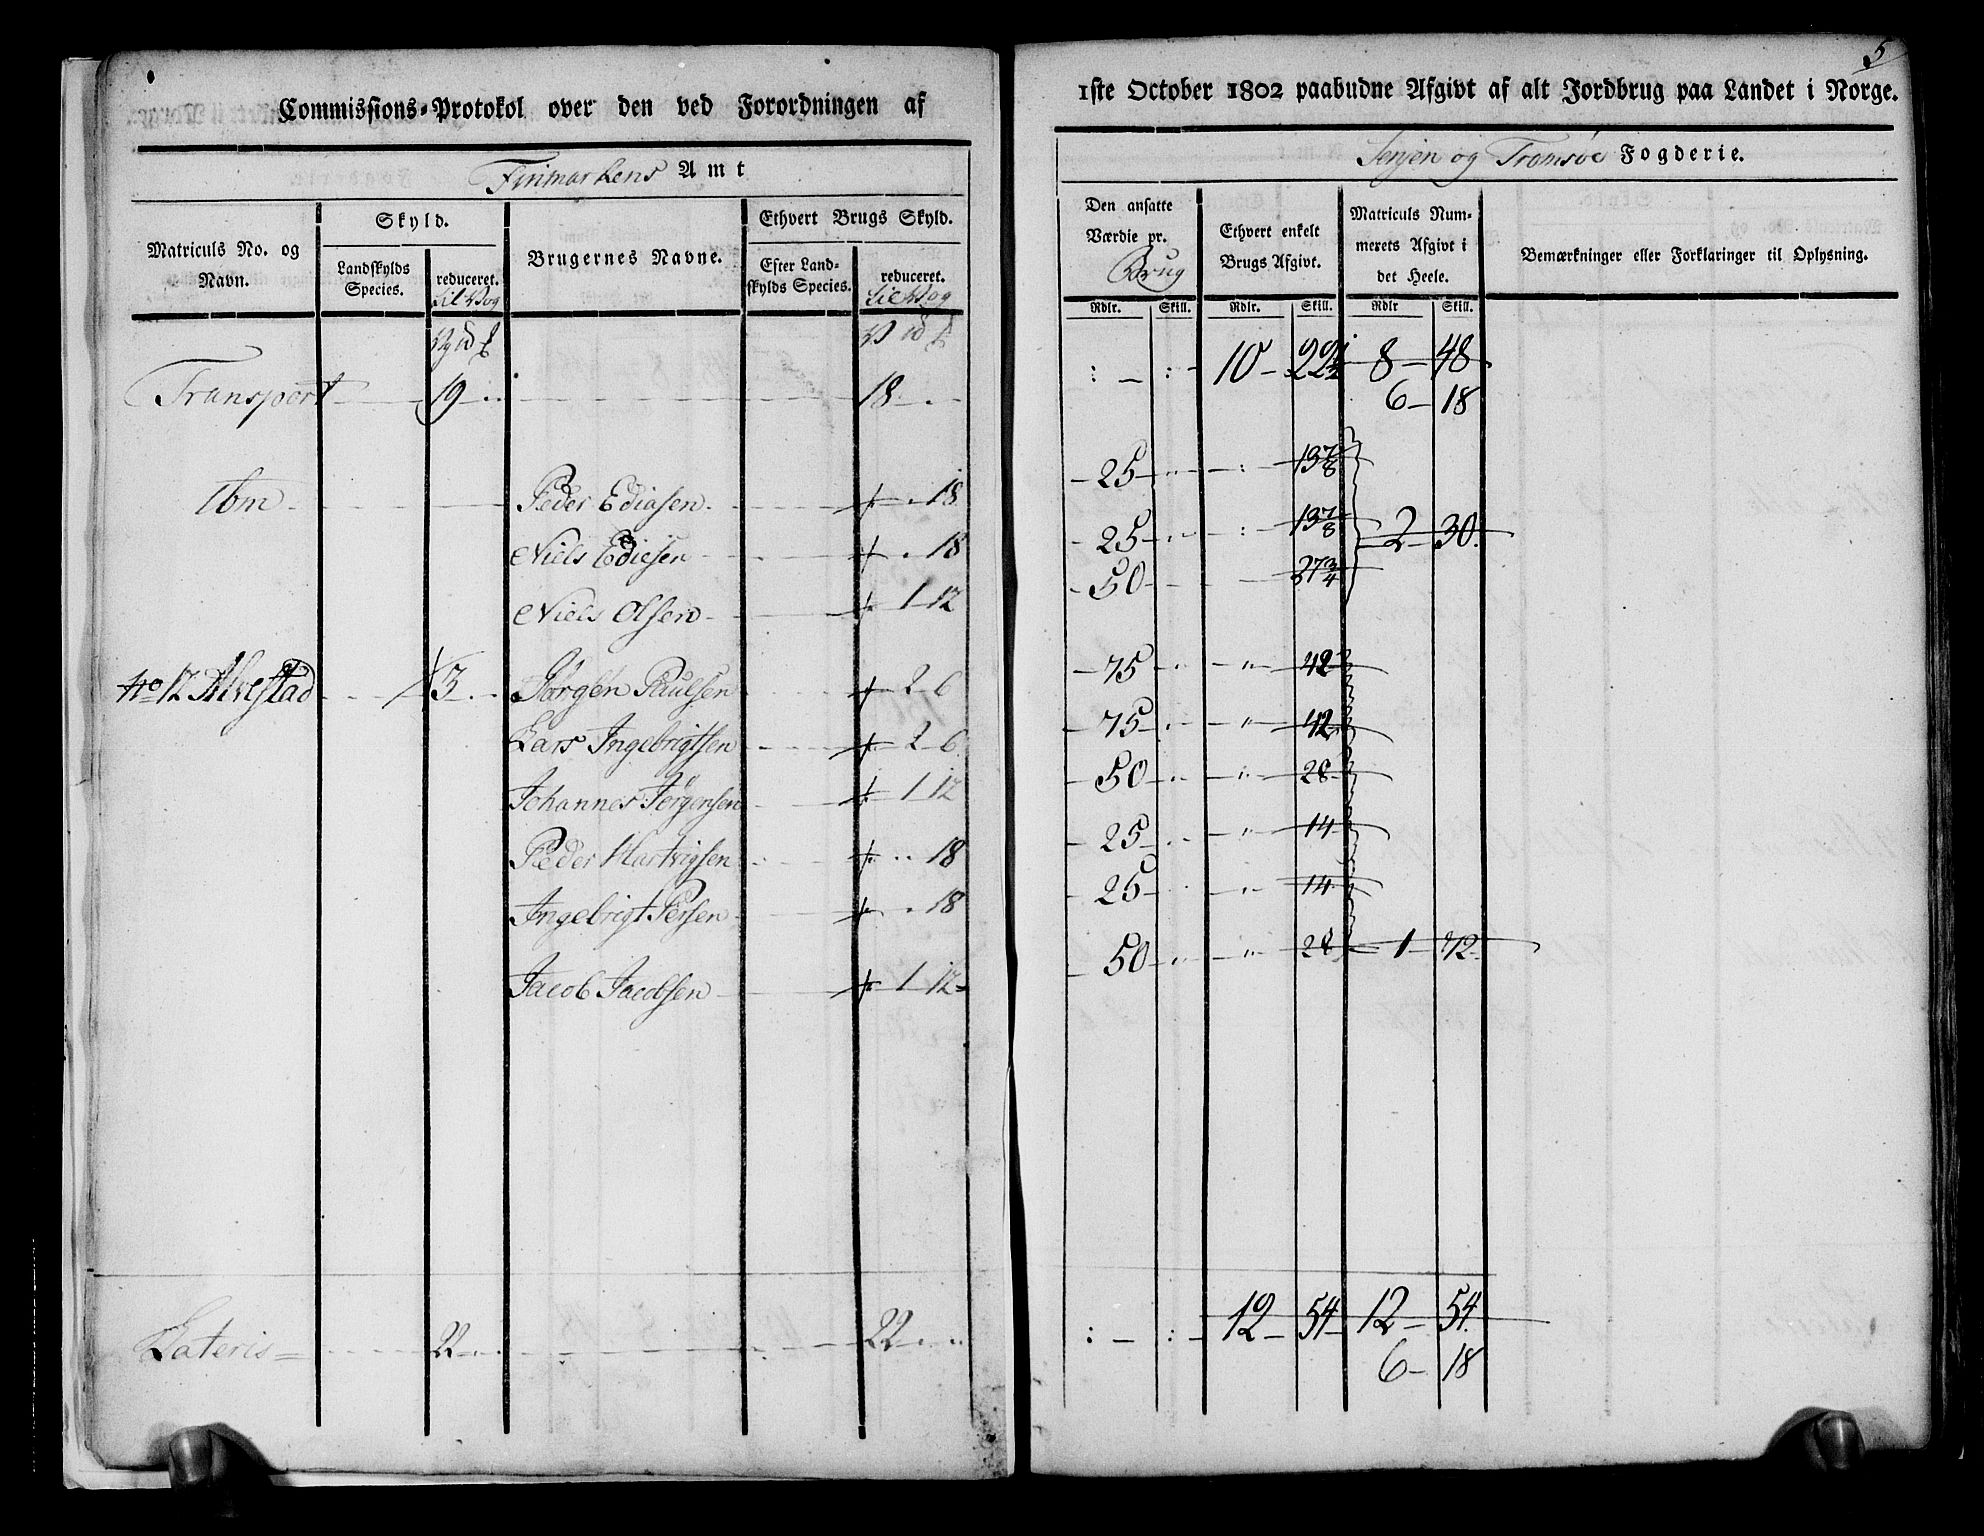 5
Commissions-Protokol over den ved Forordningen af
1ste October 1802 paabudne Afgivt af alt Jordbrug paa Landet i Norge.
Finmarkens Amt
Senjen og Tromsøe Fogderie.
Matriculs No. og Navn.
Skyld.
Landskylds Species.
reduceret.
til og
Brugernes Navne.
Ethvert Brugs Skyld.
Efter Landskylds Species.
reduceret.
til og
Den ansatte Værdie pr.
Brug
Ethvert enkelt Brugs Afgivt.
Matriculs Nummerets Afgivt i det Heele.
Bemærkninger eller Forklaringer til Oplysning.
Rdlr. Skill. Rdlr. Skill. Rdlr Skill.
Transport 19 18 : : 10 22½ 8 48
6 18
Peder Ediasen 18 25 13⅞
Niels Ediesen 18 25 13⅞ 2 30
Niels Olsen 1 12 50 27¾
No 17 Alvestad 3 Jørgen Paulsen 2 6 75 42
Lars Ingebrigtsen 2 6 75 42
Johannes Jørgensen 1 12 50 28
Peder Hartvigsen 18 25 14
Ingebrigt Persen 18 25 14
Jacob Jacobsen 1 12 50 28 1 72
Lateris 22 22 : : 12 54 12 54
6 18